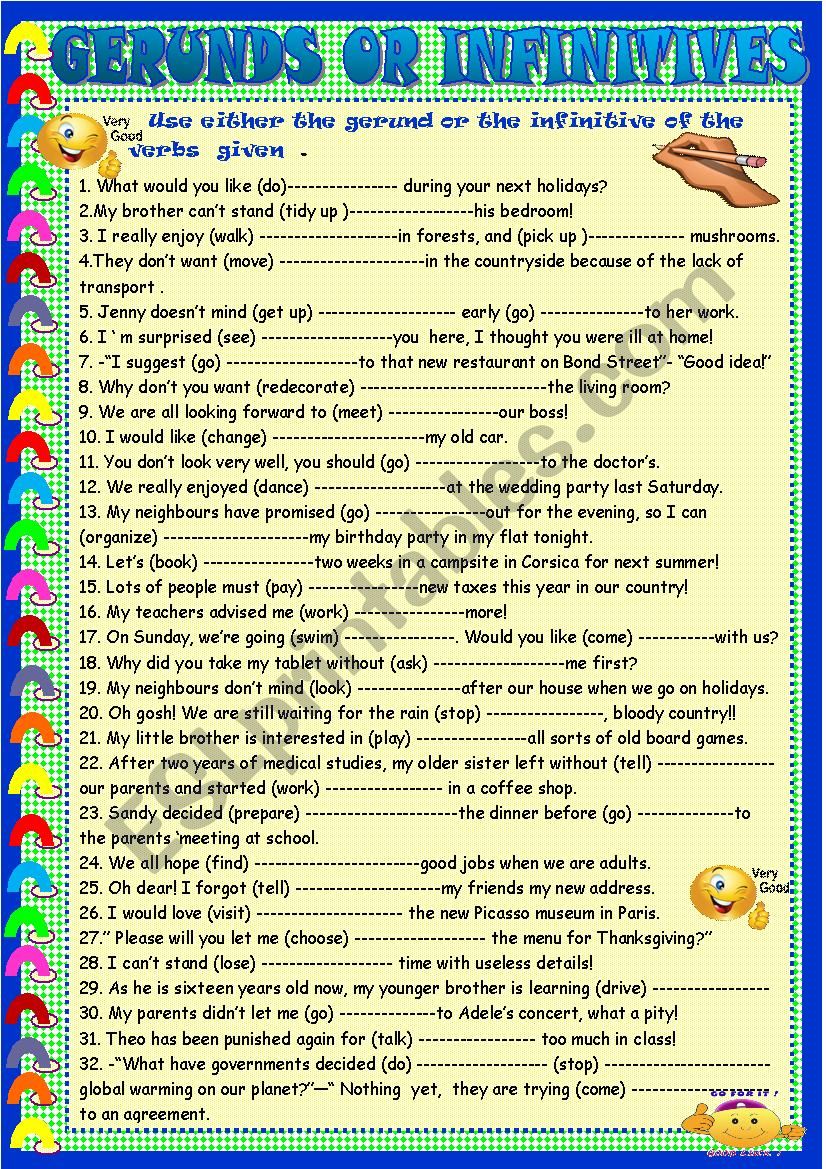 GERUNDS OR INFINITIVES
Very
Good
Use either the gerund or the infinitive of the
verbs given .
1. What would you like (do)---------------- during your next holidays?
2.My brother can't stand (tidy up )------------------his bedroom!
3. I really enjoy (walk) --------------------in forests, and (pick up )-------------- mushrooms.
4.They don't want (move) ---------------------in the countryside because of the lack of
transport .
5. Jenny doesn't mind (get up) -------------------- early (go) ---------------to her work.
6. I ' m surprised (see) -------------------you here, I thought you were ill at home!
7. -"I suggest (go) -------------------to that new restaurant on Bond Street"- "Good idea!"
8. Why don't you want (redecorate) ---------------------------the living room?
9. We are all looking forward to (meet) ----------------our boss!
10. I would like (change) ----------------------my old car.
11. You don't look very well, you should (go) ------------------to the doctor's.
12. We really enjoyed (dance) -------------------at the wedding party last Saturday.
13. My neighbours have promised (go) ----------------out for the evening, so I can
(organize) ---------------------my birthday party in my flat tonight.
14. Let's (book) ----------------two weeks in a campsite in Corsica for next summer!
15. Lots of people must (pay) ----------------new taxes this year in our country!
16. My teachers advised me (work) ----------------more!
17. On Sunday, we're going (swim) ----------------. Would you like (come) -----------with us?
18. Why did you take my tablet without (ask) -------------------me first?
19. My neighbours don't mind (look) ---------------after our house when we go on holidays.
20. Oh gosh! We are still waiting for the rain (stop) -----------------, bloody country!!
21. My little brother is interested in (play) ----------------all sorts of old board games.
22. After two years of medical studies, my older sister left without (tell) -----------------
our parents and started (work) ----------------- in a coffee shop.
23. Sandy decided (prepare) ----------------------the dinner before (go) --------------to
the parents 'meeting at school.
24. We all hope (find) ------------------------good jobs when we are adults.
25. Oh dear! I forgot (tell) ---------------------my friends my new address.
Very
Good
26. I would love (visit) --------------------- the new Picasso museum in Paris.
27." Please will you let me (choose) ------------------- the menu for Thanksgiving?"
28. I can't stand (lose) ------------------- time with useless details!
29. As he is sixteen years old now, my younger brother is learning (drive) -----------------
30. My parents didn't let me (go) --------------to Adele's concert, what a pity!
31. Theo has been punished again for (talk) ----------------- too much in class!
32. -"What have governments decided (do) ------------------- (stop) ------------------------
global warming on our planet?"—" Nothing yet, they are trying (come) --------------------
to an agreement.
GO FOR IT !
ESLprintables.com